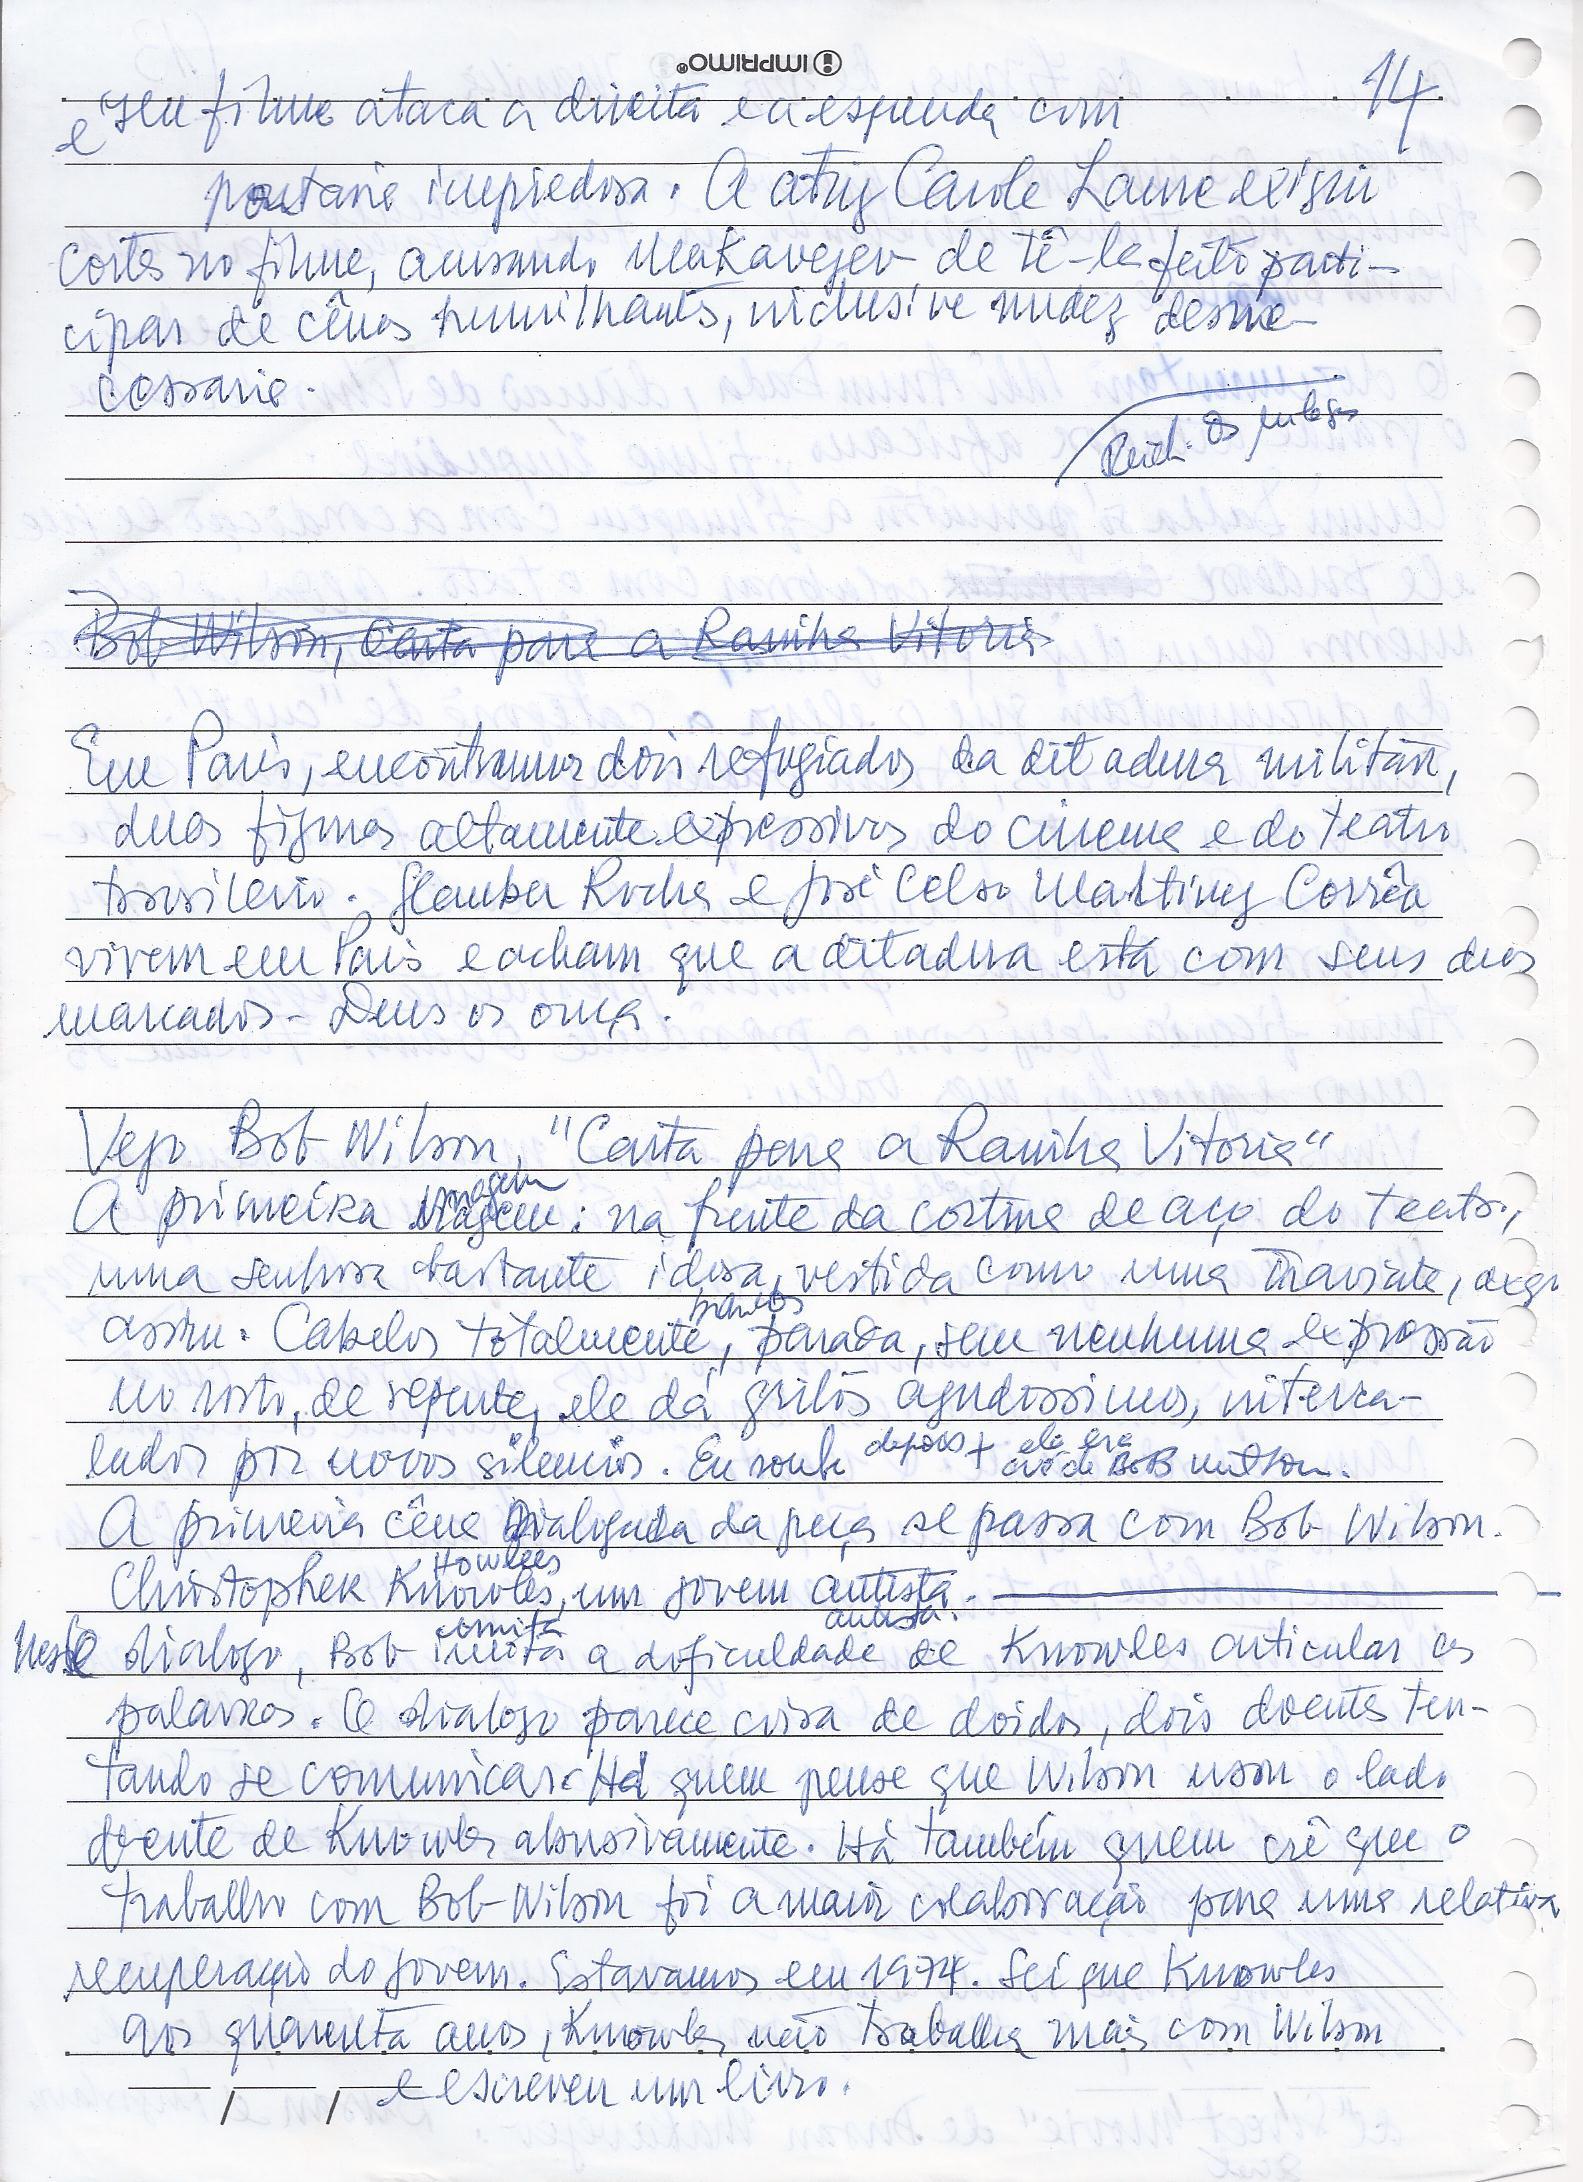 IMPRIMO
14
e seu filme ataca a direita e a esquerda com
impiedosa. A atriz Carole Laure exigiu
cortes no filme, acusando Makavejev de tê-la feito parti-
cipar de cênas humilhantes, inclusive nudez desne-
cessaria.
Reich. Os
Bob Wilson, Carta para a Rainha Vitoria
Em Paris, encontramos dois refugiados da ditadura militar,
duas figuras altamente expressivas do cinema e do teatro
brasileiro. Glauber Rocha e José Celso Martinez Corrêa
vivem em Paris e acham que a ditadura está com seus dias
marcados - Deus os ouça.
Vejo Bob Wilson, "Carta para a Rainha Vitoria"
A primeira imagem imagem: na frente da cortina de aço do teatro,
uma senhora bastante idosa, vestida como uma Traviata, digo
assim. Cabelos totalmente brancos, parada, sem nenhuma expressão
no rosto, de repente, ela dá gritos agudossimos, interca-
lados por novos silencios. Eu soube depois + ela era avó de Bob Wilson.
A primeira cêna dialogada da peça se passa com Bob Wilson.
Christopher Knowles, um jovem autista.
autista.
Neste dialogo, Bob imita a dificuldade de Knowles articular as
palavras. O dialogo parece coisa de doidos, dois doentes ten-
tando se comunicar. Há quem pense que Wilson usou o lado
doente de Knowles abusivamente. Há também quem crê que o
trabalho com Bob Wilson foi a maior colaboração para uma relativa
recuperação do jovem. Estavamos em 1974. Sei que Knowles
aos quarenta anos, Knowles não trabalha mais com Wilson
e escreveu um livro.